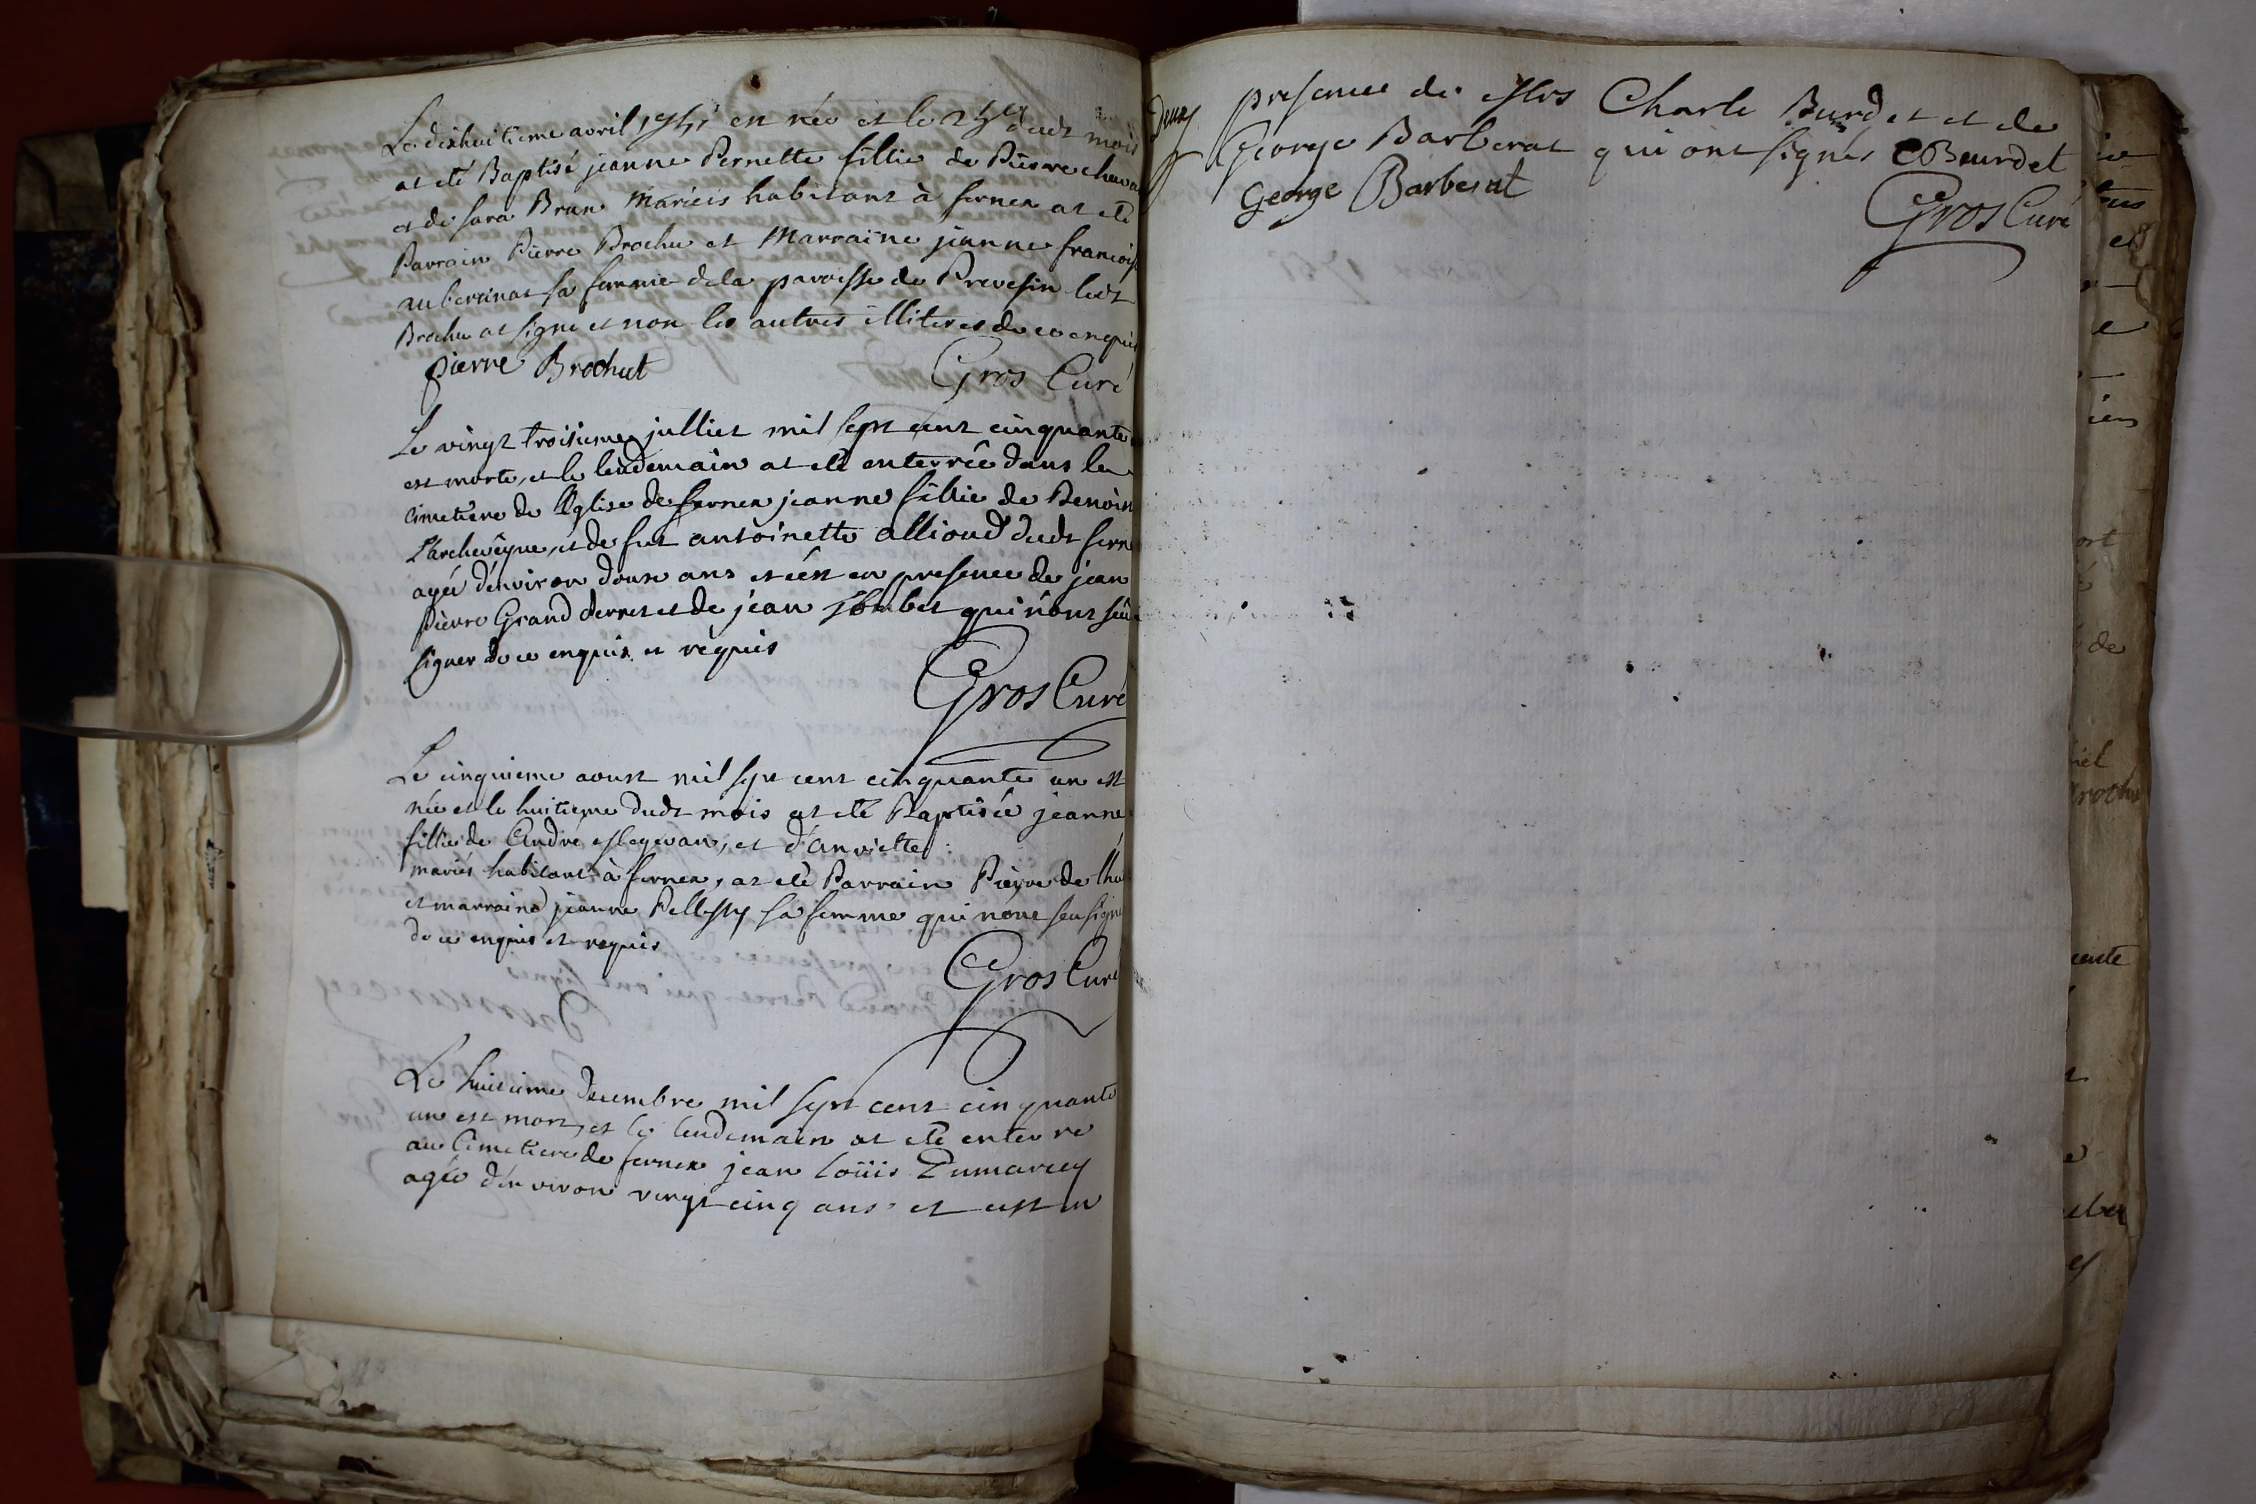 Le dixhuitieme avril 1751 est née et le 25e dudt mois
at eté Baptisé jeanne Pernette fillie de Pierre
et de sara Brun mariéis habitant à fernex at eté
Parrain Pierre Brochu et Marraine jeanne francoise
sa femme de la paroisse de Prevesin ledt
Brochu at signé et non les autres illiteres de ce enquis
pierre Brochut
Gros Curé
Le vingt troisieme julliet mil sept cent cinquante
est morte, et le lendemain at eté enterrée dans le
cimetiere de l'Eglise de fernex jeanne fillie de Benoin
Larchevêque, et de fut antoinette allioud dudt
agée d'environ douze ans et c'est en presence de jean
pierre Grand perret et de jean qui n'ont
signer de ce enquis et requis
Gros Curé
Le cinquieme aoust mil sept cent cinquante un est
née et le huitieme dudt mois at eté Baptisée jeanne
fillie de André et d'anriette
mariés habitant à fernex, at eté Parrain Pierre de
et marraine jeanne Pellissy sa femme qui n'ont seu signé
de ce enquis et requis
Gros Curé
Le huitieme decembre mil sept cent cinquante
un est mort, et le lendemain at eté enterré
au Cimetiere de fernex jean loüis Dumarcey
agée d'environ vingt cinq ans et cest en
presence de Mrs Charle Burdet et de
George Barberat qui ont signés CBurdet
George Barberat
Gros Curé